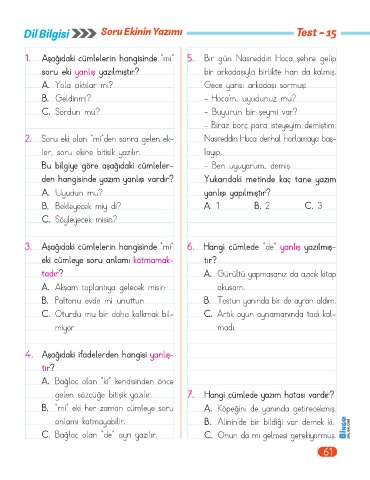 Dil Bilgisi Soru Ekinin Yazımı Test - 15
1. Aşağıdaki cümlelerin hangisinde "mi"
soru eki yanlış yazılmıştır?
A. Yola çıktılar mı?
B. Geldinmi?
C. Sordun mu?
2. Soru eki olan "mi"den sonra gelen ek-
ler, soru ekine bitişik yazılır.
Bu bilgiye göre aşağıdaki cümleler-
den hangisinde yazım yanlışı vardır?
A. Uyudun mu?
B. Bekleyecek miy di?
C. Söyleyecek misin?
3. Aşağıdaki cümlelerin hangisinde "mi"
eki cümleye soru anlamı katmamak-
tadır?
A. Akşam toplantıya gelecek misin
B. Paltonu evde mi unuttun
C. Oturdu mu bir daha kalkmak bil-
miyor
4. Aşağıdaki ifadelerden hangisi yanlış-
tır?
A. Bağlaç olan "ki" kendisinden önce
gelen sözcüğe bitişik yazılır.
B. "mi" eki her zaman cümleye soru
anlamı katmayabilir.
C. Bağlaç olan "de" ayrı yazılır.
5. Bir gün Nasreddin Hoca şehre gelip
bir arkadaşıyla birlikte han da kalmış.
Gece yarısı arkadaşı sormuş:
- Hocam, uyudunuz mu?
- Buyurun bir şeymi var?
- Biraz borç para isteyeyim demiştim.
Nasreddin Hoca derhal horlamaya baş-
layıp,
- Ben uyuyorum, demiş.
Yukarıdaki metinde kaç tane yazım
yanlışı yapılmıştır?
A. 1 B. 2 C. 3
6. Hangi cümlede "de" yanlış yazılmış-
tır?
A. Gürültü yapmasanız da azıcık kitap
okusam.
B. Tostun yanında bir de ayran aldım.
C. Artık oyun oynamanında tadı kal-
madı.
7. Hangi cümlede yazım hatası vardır?
A. Köpeğini de yanında getirecekmiş.
B. Alinin'de bir bildiği var demek ki.
C. Onun da mı gelmesi gerekiyormuş.
61